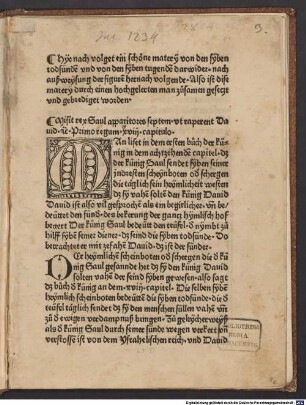 Inc 1234
9.
Hye nach volget ein schöne matery von den syben
todsünden vnd von den syben tugenden darwider · nach
außweysung der figuren hernach volgende · Also ist dise
matery durch einen hochgelerten man züsamen gesetzt
vnd geprediget worden ·
Misit rex Saul apparitores septem · vt raperent Da
uid · Primo regum · xviij · capitulo ·
MAn liset in dem ersten büch der kü
nig in dem achtzehenden capitel · dz
der künig Saul sendet syben seiner
knechten scheynboten oder schergen
die täglich sein heymlicheit westen
dz sy vahen solten den künig Dauid
Dauid ist also vil gesprochē als ein begirlicher · vñ be
deüttet den sünder · des bekerung der gantz hymlisch hof
begert Der künig Saul bedeütt den teüfel · der nymbt zü
hilff syben seiner diener · dz seind die syben todsünde · Do
betrachtet er wie er vahe Dauid · dz ist der sünder ·
Der heymlich scheinboten oder schergen die der kü
nig Saul gesannde het dz sy den künig Dauid
solten vahē der seind syben gewesen · also sagt
dz büch der künig an dem · xviij · capitel · Die selben syben
heymlich scheinboten bedeüttē die syben todsünde · die der
teüfel täglich sendet dz sy den menschen süllen vahē vñ
zü der ewigen verdampnuß bringen · Zü geleicherweyß
als der künig Saul durch seiner sünde wegen verkert vnd
verstossē ist von dem Israhelischen reich · vnd Dauid
BIBLIOTHECA
REGIA
MONACENSIS